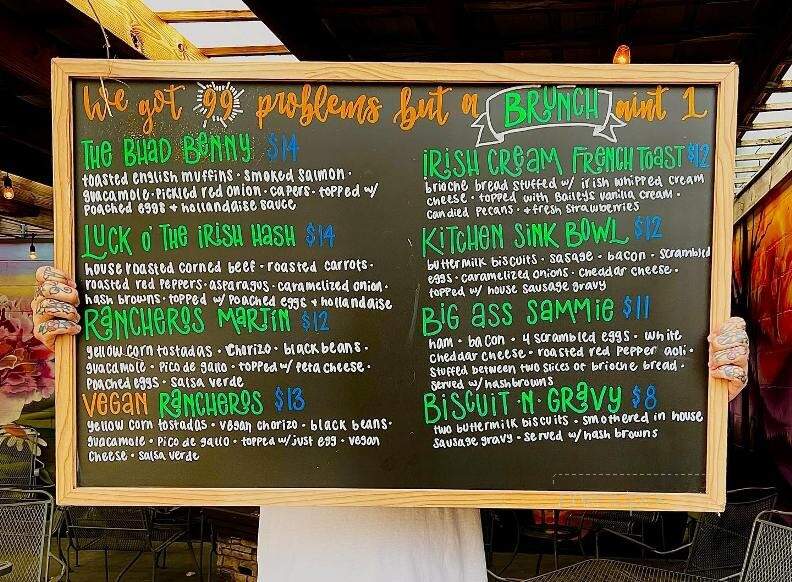 We got 99 problems but a BRUNCH aint 1
THE BHAD BENNY $14
toasted english muffins · smoked salmon ·
guacamole · pickled red onion · capers · topped w/
poached eggs + hollandaise sauce
LUCK O' THE IRISH HASH $14
house roasted corned beef · roasted carrots ·
roasted red peppers · asparagus · caramelized onion ·
hash browns · topped w/ poached eggs + hollandaise
RANCHEROS MARTIN $12
yellow corn tostadas · chorizo · black beans ·
guacamole · pico de gallo · topped w/ feta cheese ·
poached eggs · salsa verde
VEGAN RANCHEROS $13
yellow corn tostadas · vegan chorizo · black beans ·
guacamole · pico de gallo · topped w/ just egg · vegan
cheese · salsa verde
IRISH CREAM FRENCH TOAST $12
brioche bread stuffed w/ irish whipped cream
cheese · topped with Baileys vanilla cream ·
candied pecans · + fresh strawberries
KITCHEN SINK BOWL $12
buttermilk biscuits · sasage · bacon · scrambled
eggs · caramelized onions · cheadar cheese ·
topped w/ house sausage gravy
BIG ASS SAMMIE $11
ham · bacon · 4 scrambled eggs · white
cheddar cheese · roasted red pepper aoli ·
stuffed between two slices of brioche bread ·
served w/ hashbrowns
BISCUIT · N · GRAVY $8
two buttermilk biscuits · smothered in house
sausage gravy · served w/ hash browns